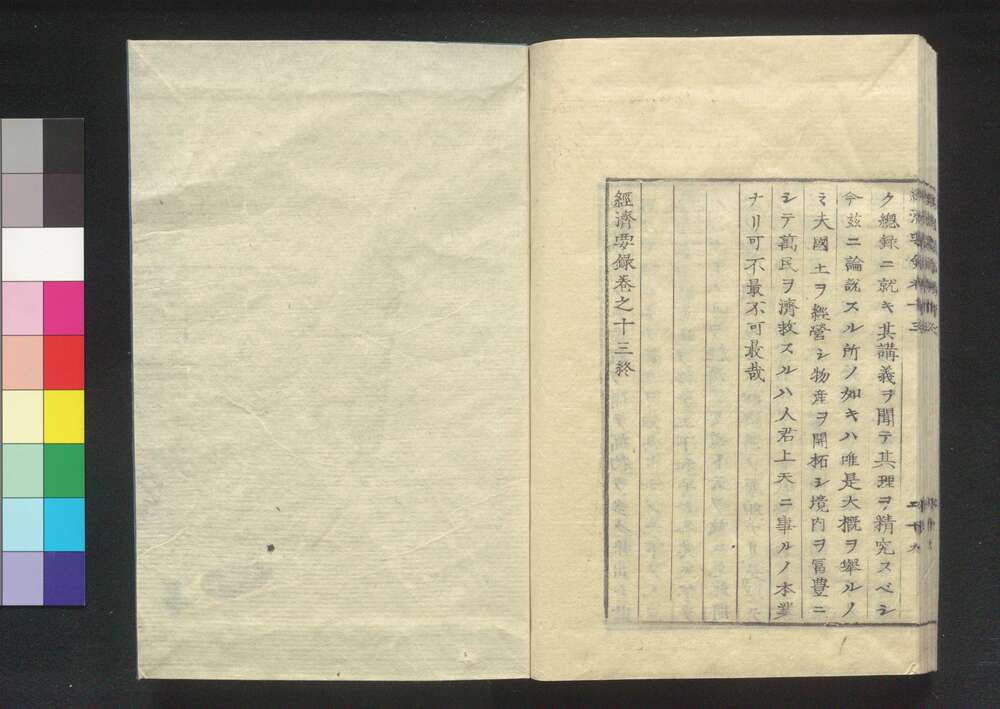 ク總録ニ就キ其講義ヲ聞テ其理ヲ精究スベシ
今茲ニ論説スル所ノ如キハ唯是大概ヲ擧ルノ
ミ夫國土ヲ經營シ物産ヲ開拓シ境内ヲ冨豐ニ
シテ萬民ヲ濟救スルハ人君上天ニ事ルノ本業
ナリ可不最不可最哉
經濟要録巻之十三終